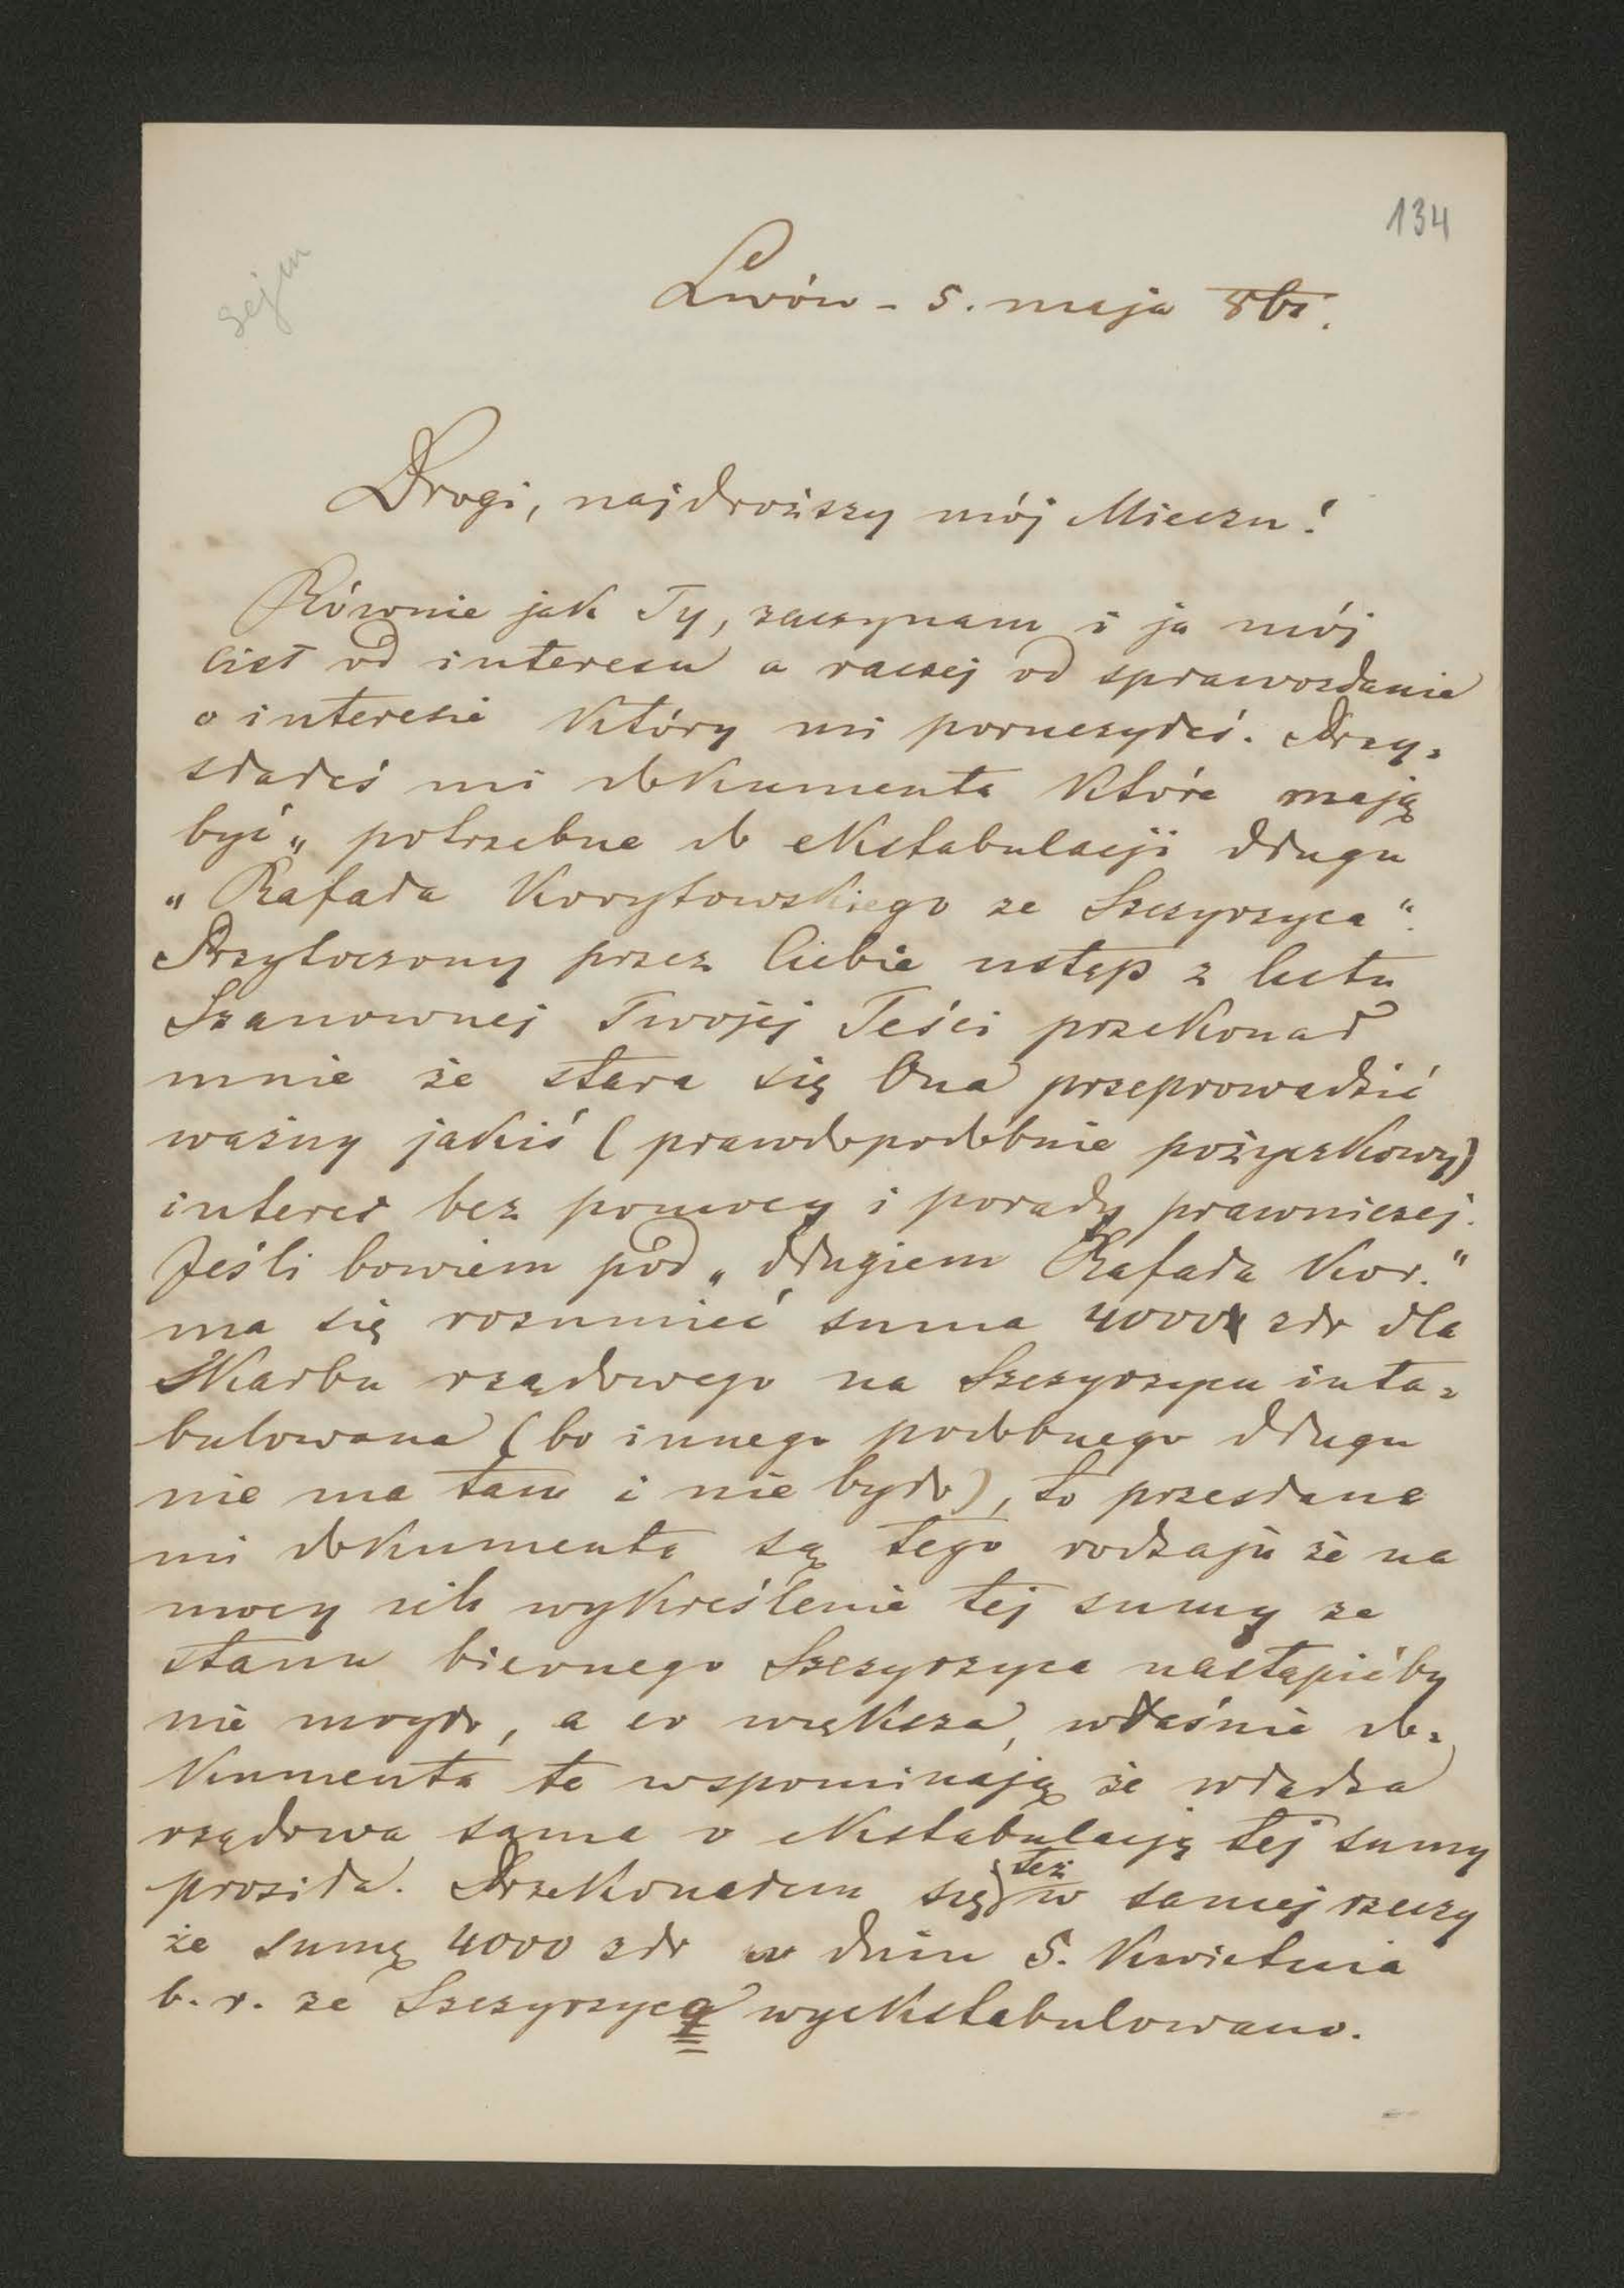 134
Sejm
Lwów - 5. maja
Drogi, najdroższy mój Mieczu!
Równie jak Ty, zaczynam i ja mój
list od interesu a raczej od sprawozdania
o interesie który mi poruczyłeś. Przy=
słałeś mi dokumenta które mają
być „ potrzebne do ekstabulacji długu
„ Rafała Korytowskiego ze Szczyrzyca “.
Przytoczony przez Ciebie ustęp z listu
Szanownej Twojej Teści przekonał
mnie że stara się Ona przeprowadzić
ważny jakiś ( prawdopodobnie pożyczkowy)
interes bez pomocy i porady prawniczej.
Jeśli bowiem pod „ długiem Rafała Kor.“
ma się rozumieć suma 4000 złr dla
Skarbu rządowego na Szczyrzycu inta=
bulowana ( bo innego podobnego długu
nie ma tam i nie było), to przesłane
mi dokumenta są tego rodzaju że na
mocy ich wykreślenie tej sumy ze
stanu biernego Szczyrzyca nastąpićby
nie mogło, a co większa, właśnie do=
kumenta te wspominają że władza
rządowa sama o ekstabulację tej sumy
prosiła. Przekonałem się też w samej rzeczy
że sumę 4000 złr w dniu 5. Kwietnia
b. r. ze Szczyrzyca wyekstabulowano.